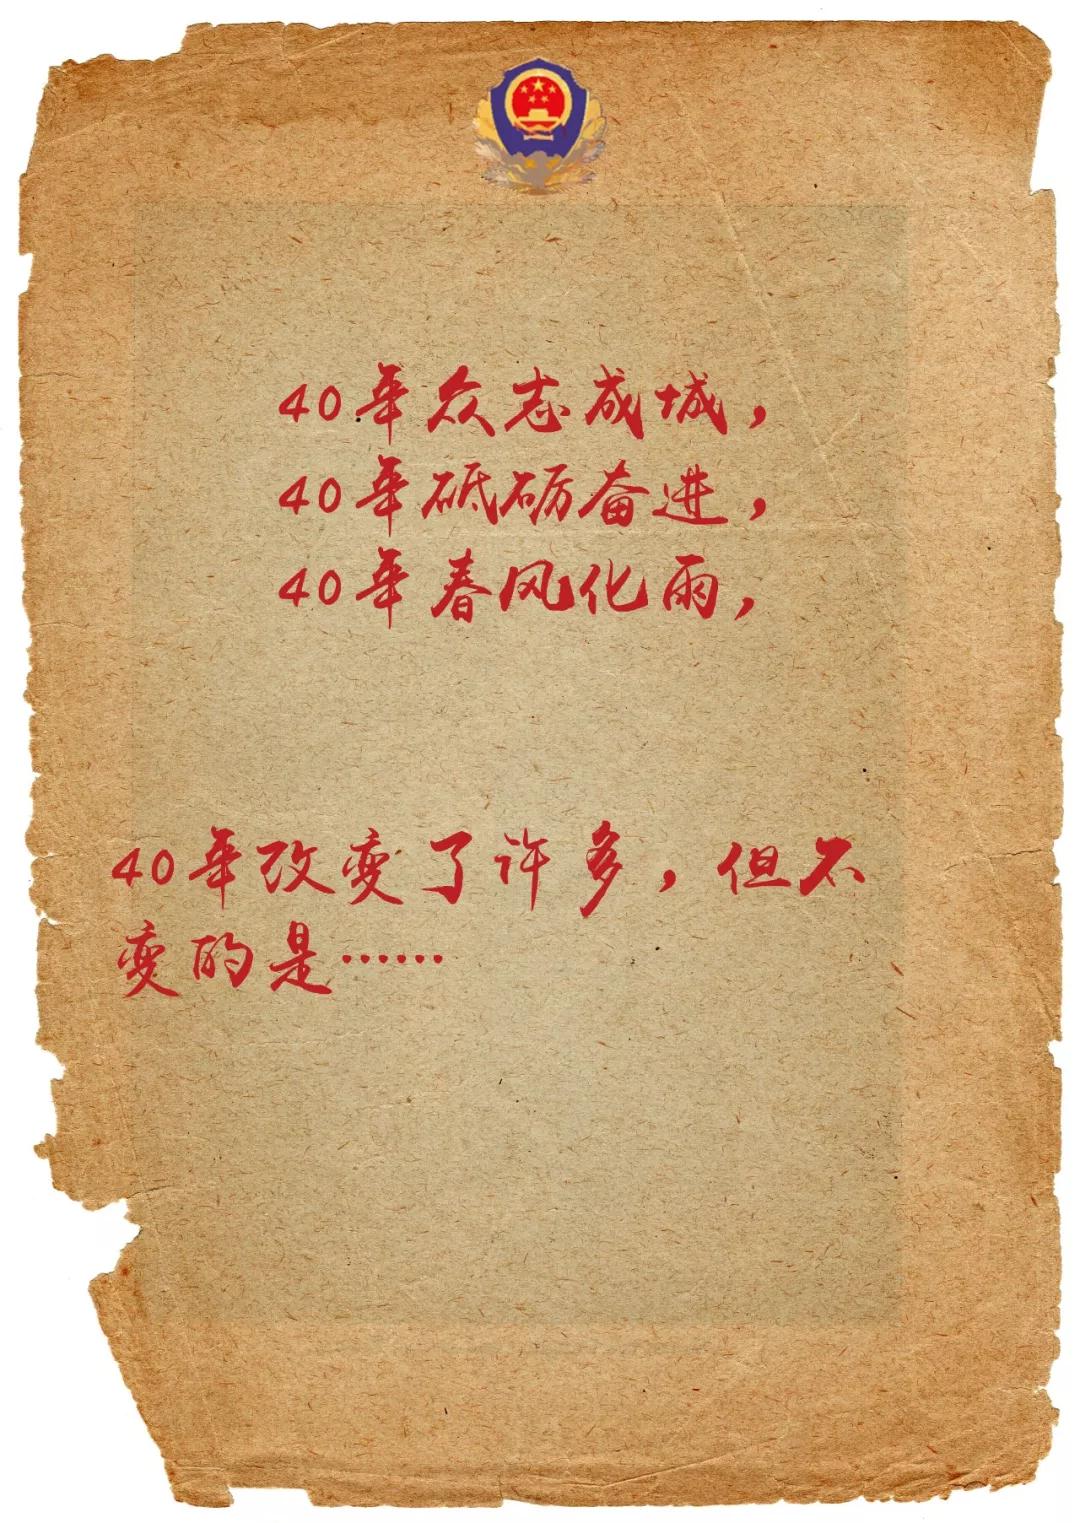 40年众志成城，
40年砥砺奋进，
40年春风化雨，
40年改变了许多，但不
变的是……